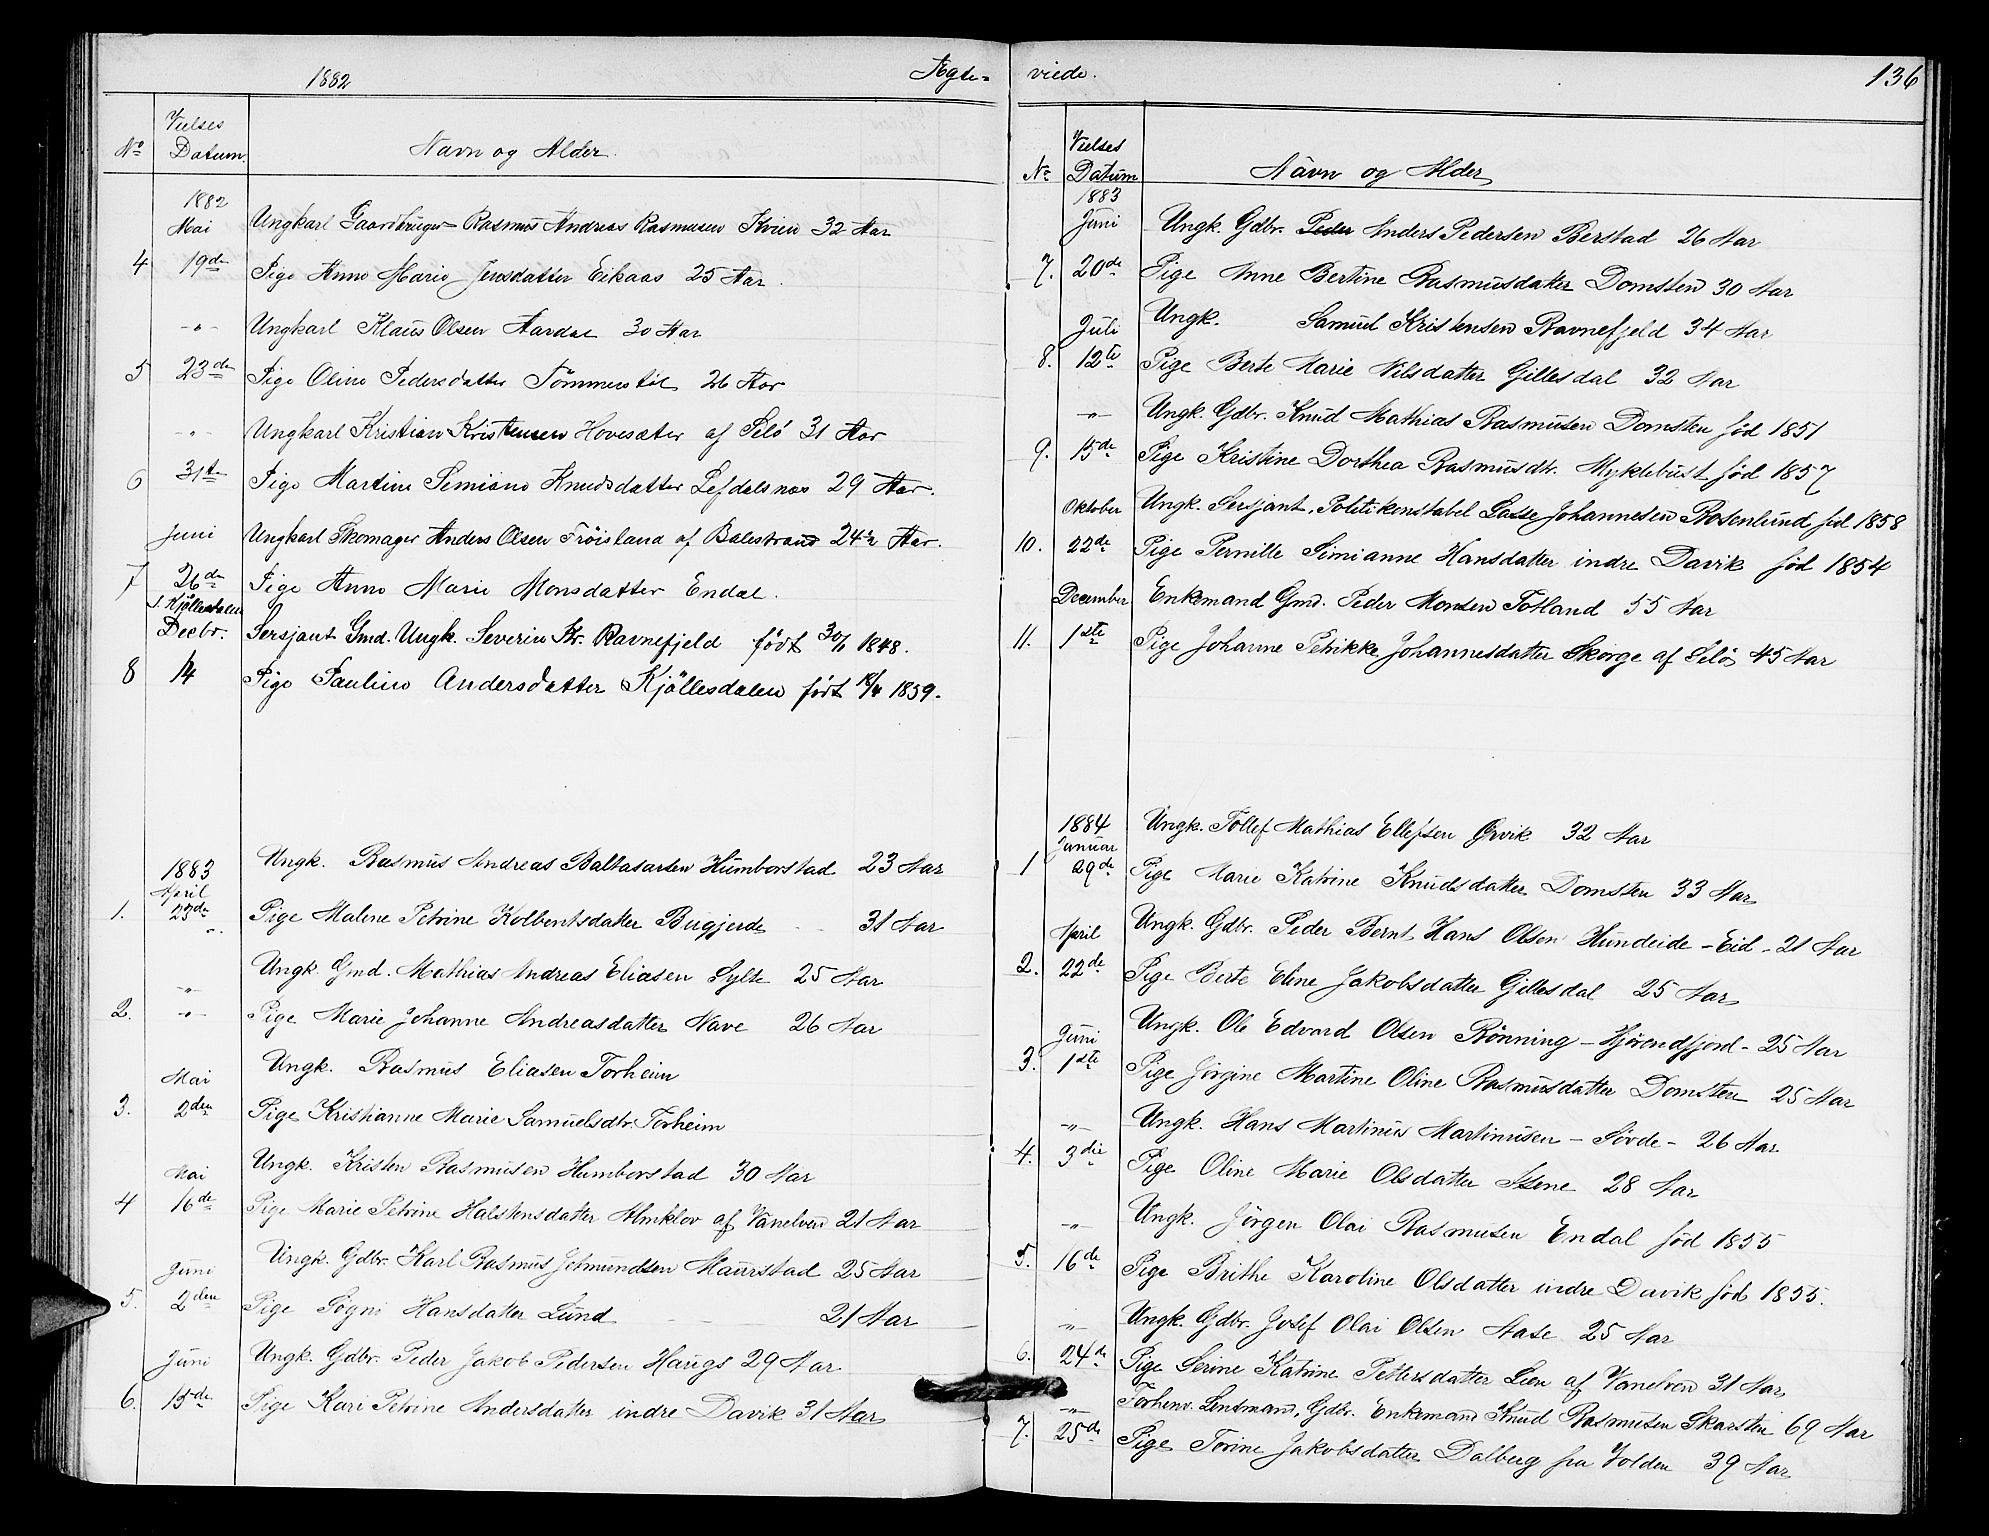 1882
Ægte=
Vielses
No Datum. Navn og Alder.
1882
Mai Ungkarl Gaardbruger Rasmus Andreas Rasmusen Kvien 32 Aar
4 19de Pige Anne Marie Jensdatter Eikaas 25 Aar.
-"- Ungkarl Klaus Olsen Aardal 30 Aar
5 23de Pige Oline Pedersdatter Tømmerstøl 26 Aar
-"- Ungkarl Kristian Kristensen Hovesæter af Selö 31 Aar
6 31te Pige Martine Simiane Knudsdatter Lefdalsnes 29 Aar.
Juni Ungkarl Skomager Anders Olsen Frøisland af Balestrand 24½ Aar.
7 26de Pige Anne Marie Monsdatter Endal.
i Kjöllesdalen
Decbr. Sersjant Gmd. Ungk. Severin Kr. Ravnefjeld født 30/1 1848.
8 14 Pige Pauline Andersdatter Kjöllesdalen født 18/4 1859.
1883 Ungk. Rasmus Andreas Baltasarsen Humborstad 23 Aar
April
1. 23de Pige Malene Petrine Kolbentsdatter Bugjerde 31 Aar
-"- Ungk. Gmd. Mathias Andreas Eliasen Sylte 25 Aar
2. -"- Pige Marie Johanne Andreasdatter Nave 26 Aar
Mai Ungk. Rasmus Eliasen Torheim
3. 2den Pige Kristianne Marie Samuelsdtr. Torheim
Mai Ungk. Kristen Rasmusen Humborstad 30 Aar
4 16de Pige Marie Petrine Halstensdatter Almklov af Vanelven 21 Aar
Juni Ungk. Gdbr. Karl Rasmus Jetmundsen Maurstad 25 Aar
5. 2den Pige Søgni Hansdatter Lund 21 Aar
Juni Ungk. Gdbr. Peder Jakob Pedersen Haugs 29 Aar
6. 15de Pige Kari Petrine Andersdatter indre Davik 31 Aar
viede.
136
Vielses
No Datum Navn og Alder
1883
Juni Ungk. Gdbr. Peder Anders Pedersen Berstad 26 Aar
7. 20de Pige Anne Bertine Rasmusdatter Domsten 30 Aar
Juli Ungk. Samuel Kristensen Ravnefjeld 34 Aar
8. 12te Pige Berte Marie Nilsdatter Gillesdal 32 Aar
-"- Ungk. Gdbr. Knud Mathias Rasmusen Domsten fød 1851
9. 15de Pige Kristine Dorthea Rasmusdtr. Myklebust fød 1857
Oktober Ungk. Sersjant, Politikonstabel Lasse Johannesen Rosenlund fød 1858
10. 22de Pige Pernille Simianne Hansdatter indre Davik fød 1854
December Enkemand Gmd. Peder Monsen Totland 55 Aar
11. 1ste Pige Johanne Petrikke Johannesdatter Skorge af Selö 45 Aar
1884 Ungk. Tollef Mathias Ellefsen Ørvik 32 Aar
Januar
1 29de Pige Marie Katrine Knudsdatter Domsten 33 Aar
April Ungk. Gdbr. Peder Bernt Hans Olsen Hundeide - Eid - 21 Aar
2. 22de Pige Berte Eline Jakobsdatter Gillesdal 25 Aar
Juni Ungk. Ole Edvard Olsen Rönning - Hjørendfjord - 25 Aar
3. 1ste Pige Jørgine Martine Oline Rasmusdatter Domsten 25 Aar
-"- Ungk. Hans Martinus Martinusen - Søvde - 26 Aar
4. 3die Pige Oline Marie Olsdatter Stene 28 Aar
-"- Ungk. Jörgen Olai Rasmusen Endal fød 1855
5. 16de Pige Brithe Karoline Olsdatter indre Davik fød 1855.
-"- Ungk. Gdbr. Josef Olai Olsen Aase 25 Aar
6. 24de Pige Serine Katrine Pettersdatter Lien af Vanelven 31 Aar
-"- Forhenv. Lensmand, Gdbr. Enkemand Knud Rasmusen Skarsten 69 Aar
7. 25de Pige Torine Jakobsdatter Dalberg fra Volden 39 Aar